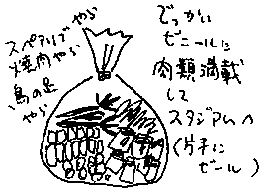 でっかい
ビニールに
肉類満載
して
スタジアムへ
(片手に
ビール)
スペアリブ
やら
焼肉やら
鳥の足
やら